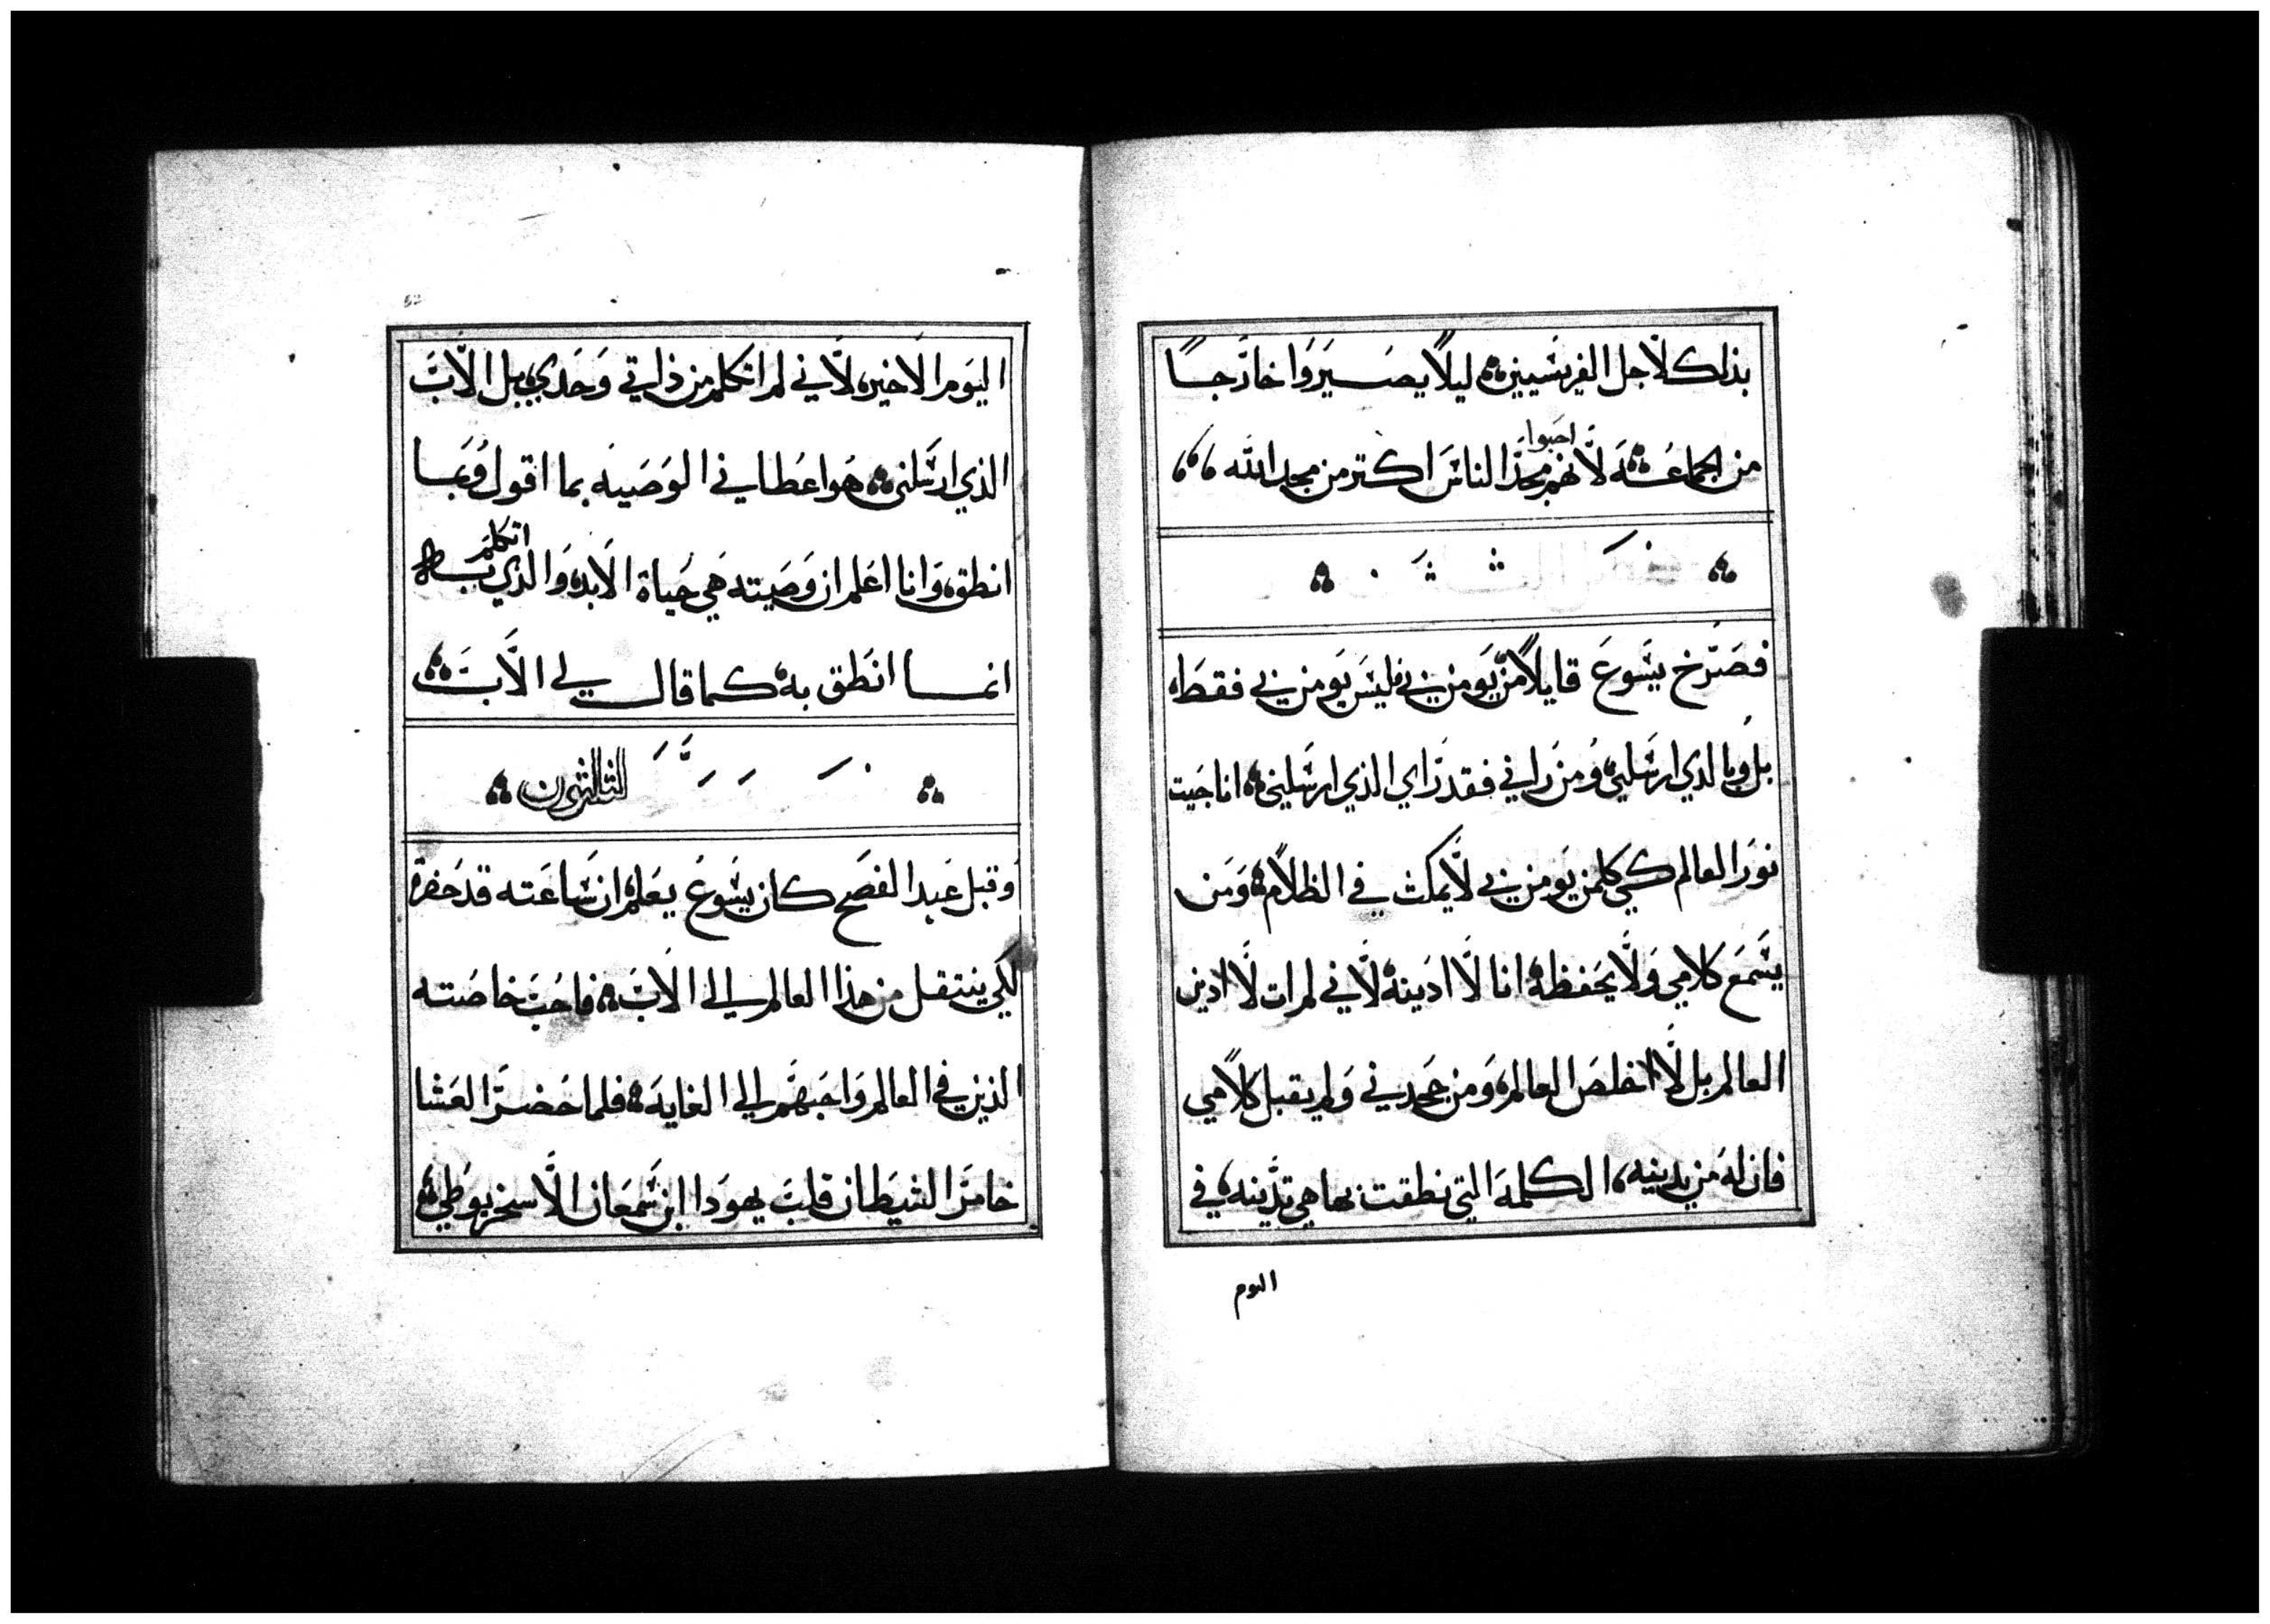 بذلك لاجل الفريسيين ليلا يصيروا خارجا
من الجماعة لانهم احبوا مجد الناس اكتر من مجد الله
فصرخ يسوع قايلا من يومن بي فليس يومن بي فقط
بل وبالدي ارسلني ومن راني فقد راي الذي ارسلني انا جيت
نور العالم كي كلمن يومن بي لا يمكث في الظلام ومن
يسمع كلامي ولا يحفظه انا لا ادينه لاني لم ات لاادين
العالم بل لااخلص العالم ومن جحدني ولم يقبل كلامي
فان له من يدينه الكلمة التي نطقت بها هي تدينه في
اليوم
اليوم الاخير لاني لم اتكلم من ذاتي وحدي بل الاب
الذي ارسلني هو اعطاني الوصيه بما اقول وبما
انطق وانا اعلم ان وصيته هي حياة الابد والذي اتكلم به
انما انطق به كما قال لي الاب
التالتون
وقبل عيد الفصح كان يسوع يعلم ان ساعته قد حضرة
لكي ينتقل من هذا العالم الي الاب فاحب خاصته
الذين في العالم واحبهم الي الغايه فلما حضر العشا
خامر الشيطان قلب يهودا ابن سمعان الاسخريوطي